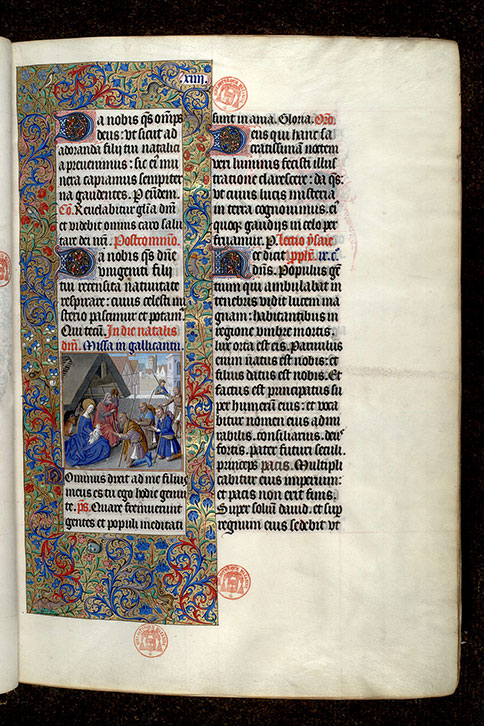 xiii.
Da nobis q̄s om̄ps
deus: ut sicut ad
adoranda filij tui natalici
a prevenimus: sic eiꝰ mu
nera capiamus sempiter
na gaudentes. P eūdem.
Cō. Revelabitur glīa dn̄i
et videbit omnis caro salu
tare dei nr̄i. Postcommō.
Da nobis q̄s dn̄e
unigeniti filij
tui recensita nativitate
respirare: cuius celesti mi
sterio pascimur et potam̄
Qui tecū. In die natalis
dn̄i. Missa in gallicantu.
Dominus dixit ad me filius
meus es tu ego hodie genui
te. p̄s. Quare fremuerunt
gentes et populi meditati
sunt inania. Gloria. Orō.
Deus qui hanc sa
cratissimam noctem
veri luminis fecisti illus
tratione clarescere: da q̄s:
ut cuius lucis misteria
in terra cognovimus. ei
quoqꝫ gaudijs in celo per
fruamur. P. Lectio ysaie
pphē. ix. c.
Hec dicit
dn̄s. Populus gē
tium qui ambulabat in
tenebris vidit lucem ma
gnam: habitantibus in
regione umbre mortis.
lux orta est eis. Parvulus
enim natus est nobis: et
filius datus est nobis. Et
factus est principatus su
per humerū eius: et voca
bitur nomen eius admi
rabilis. consiliarius. deꝰ
fortis. pater futuri seculi.
princeps pacis. Multipli
cabitur eius imperium:
et pacis non erit finis.
Super soliū david. et sup
regnum eius sedebit ut